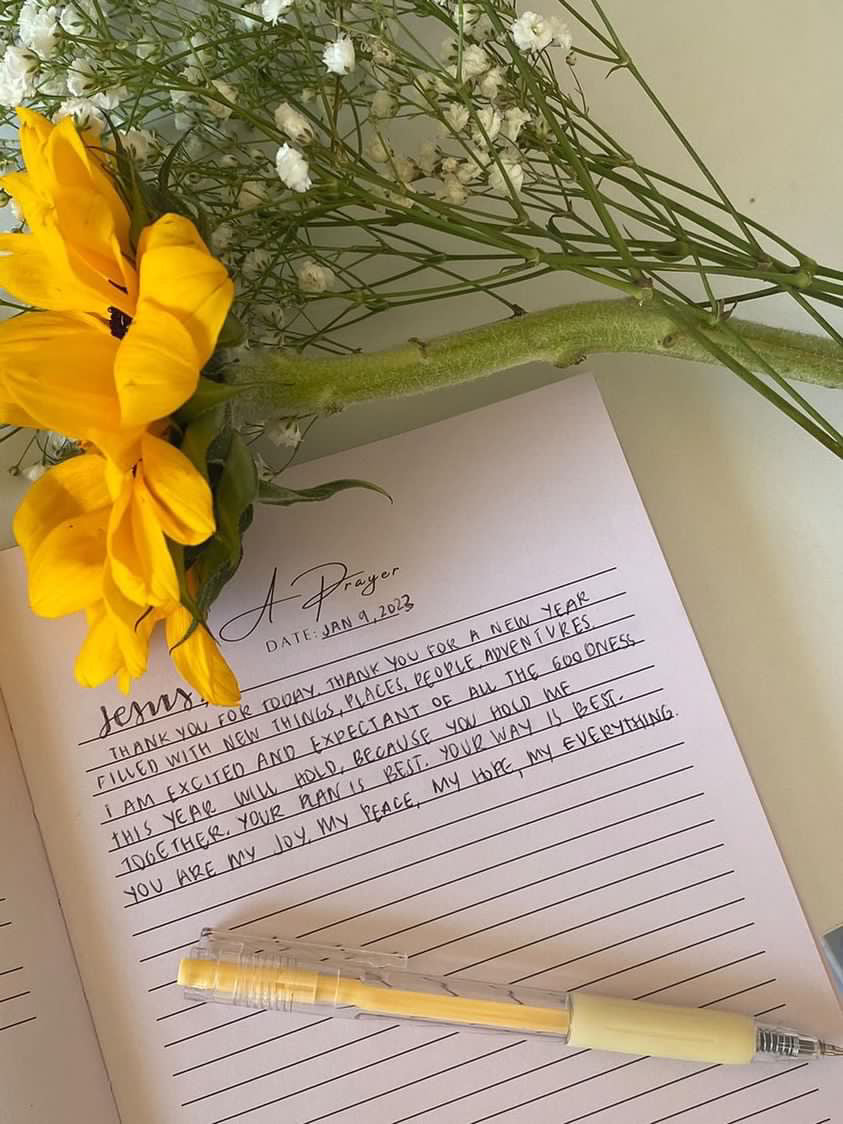 A Prayer
DATE: JAN 9, 2023
Jesus,
THANK YOU FOR TODAY. THANK YOU FOR A NEW YEAR
FILLED WITH NEW THINGS, PLACES, PEOPLE, ADVENTURES.
I AM EXCITED AND EXPECTANT OF ALL THE GOODNESS
THIS YEAR WILL HOLD, BECAUSE YOU HOLD ME
TOGETHER. YOUR PLAN IS BEST. YOUR WAY IS BEST.
YOU ARE MY JOY, MY PEACE, MY HOPE, MY EVERYTHING.